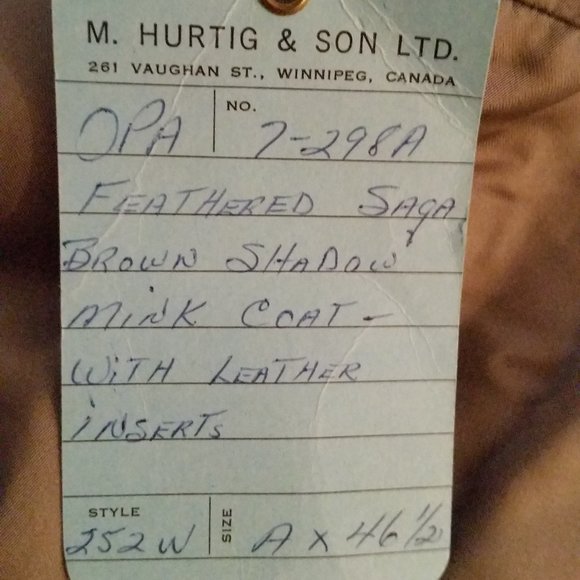 M. HURTIG & SON LTD.
261 VAUGHAN ST., WINNIPEG, CANADA
OPA NO. 7-298A
FEATHERED SAGA
BROWN SHADOW
MINK COAT -
WITH LEATHER
INSERTS
STYLE 252W SIZE A x 46 1/2